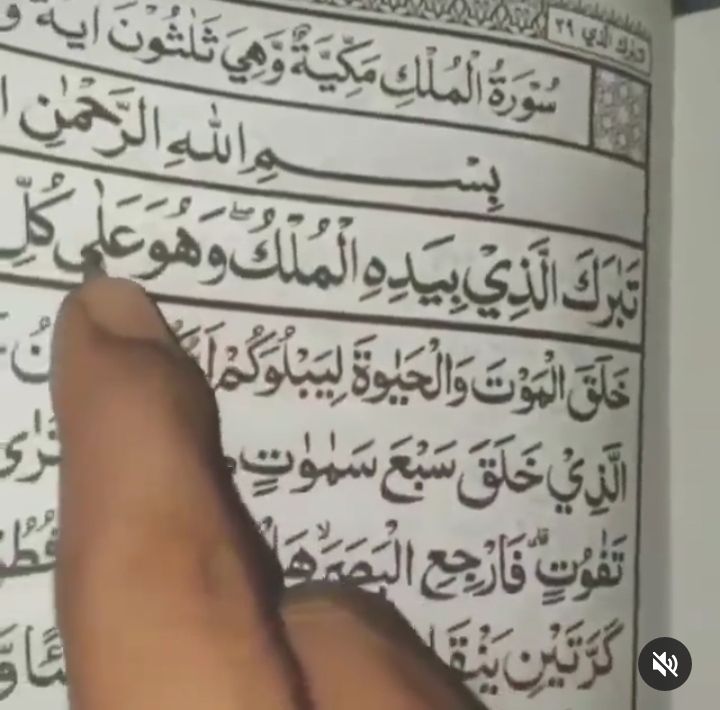 تبٰرك الذي ٢٩
سُوْرَةُ الْمُلْكِ مَكِّيَّةٌ وَّهِيَ ثَلٰثُوْنَ اٰيَةً وَّ
بِسْمِ اللّٰهِ الرَّحْمٰنِ
تَبٰرَكَ الَّذِيْ بِيَدِهِ الْمُلْكُ ۖ وَهُوَ عَلٰى كُلِّ
خَلَقَ الْمَوْتَ وَالْحَيٰوةَ لِيَبْلُوَكُمْ
الَّذِيْ خَلَقَ سَبْعَ سَمٰوٰتٍ
تَفٰوُتٍ ؕ فَارْجِعِ الْبَصَرَ ۙ هَلْ
كَرَّتَيْنِ